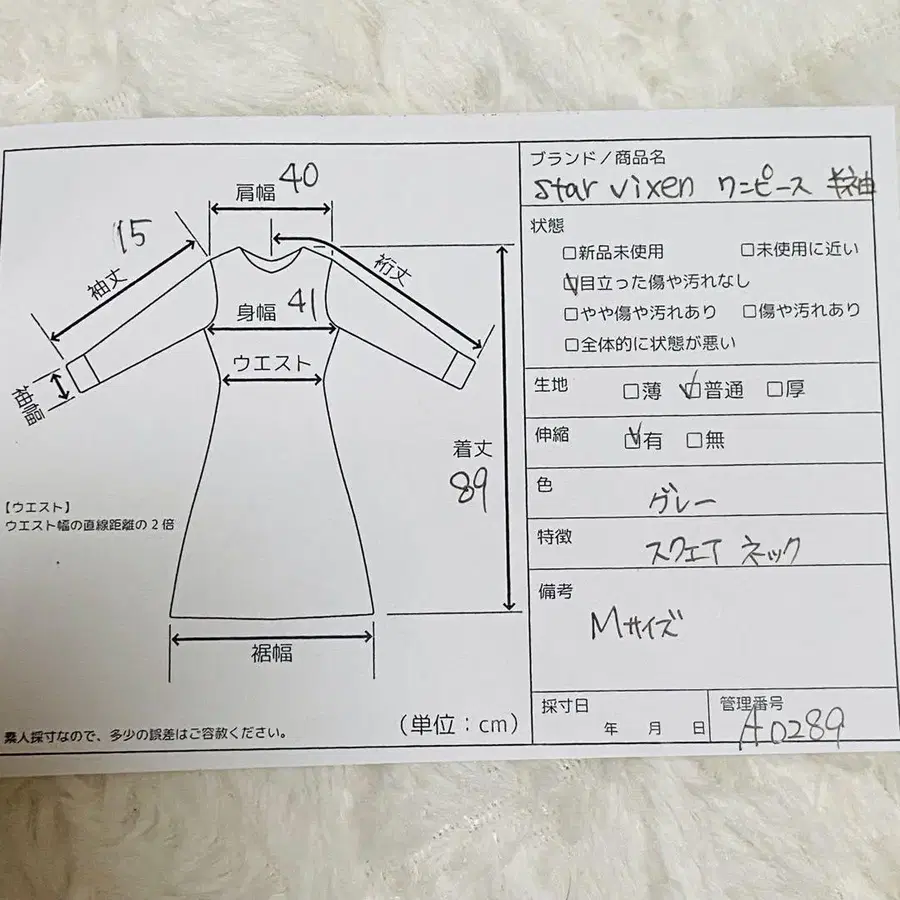 肩幅 40
15
袖丈
裄丈
身幅 41
ウエスト
袖幅
着丈
89
【ウエスト】
ウエスト幅の直線距離の2倍
裾幅
(単位:cm)
素人採寸なので、多少の誤差はご容赦ください。
ブランド/商品名
star vixen ワンピース 半袖
状態
□新品未使用 □未使用に近い
☑目立った傷や汚れなし
□やや傷や汚れあり □傷や汚れあり
□全体的に状態が悪い
生地 □薄 ☑普通 □厚
伸縮 ☑有 □無
色
グレー
特徴
スクエア ネック
備考
Mサイズ
採寸日
年 月 日
管理番号
A0289